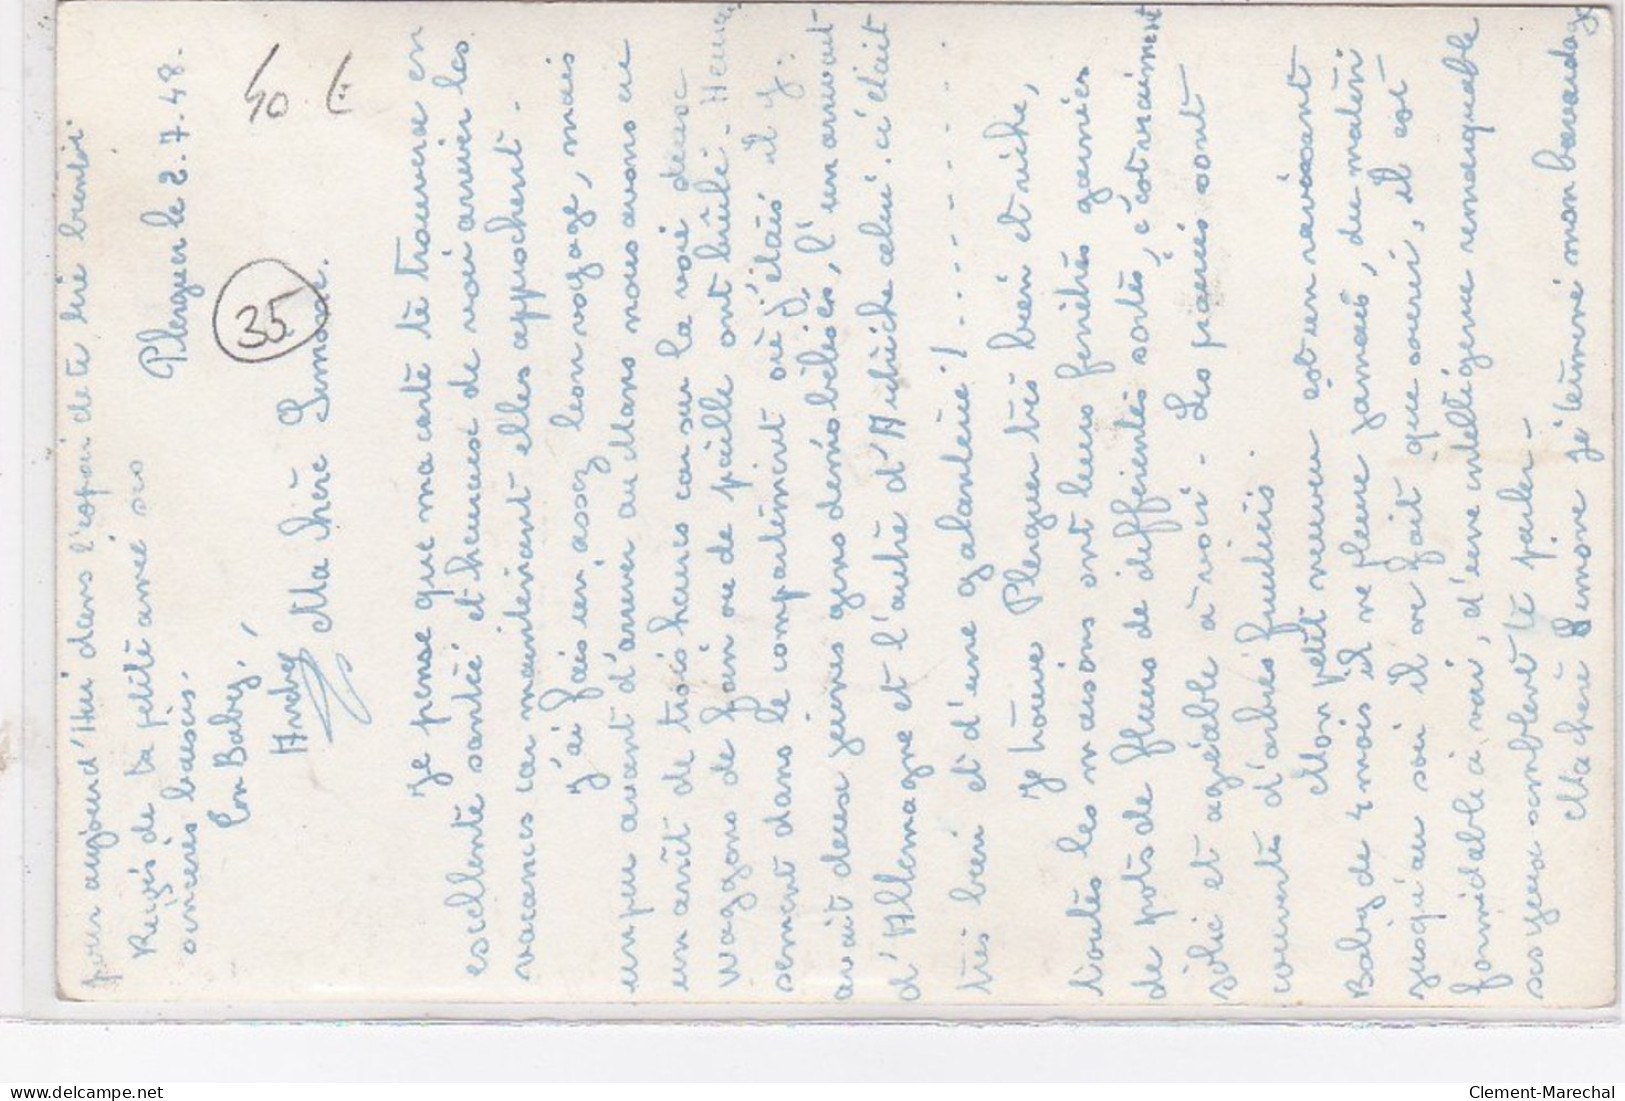 Plerguer le 2.7.48.
40 E
35
Ma chère Simone.
Je pense que ma carte te trouvera en
excellente santée et heureuse de voir arriver les
vacances car maintenant elles approchent.
J'ai fais un assez bon voyage, mais
un peu avant d'arriver au Mans nous avons eu
un arrêt de trois heures car sur la voie deux
waggons de foin ou de paille ont brûlé. Heureu
sement dans le compartiment où j'étais il y
avait deux jeunes gens démobilisés, l'un arrivait
d'Allemagne et l'autre d'Autriche celui-ci était
très bien et d'une galanterie! . . . . . . . . .
Je trouve Plerguer très bien et riche,
toutes les maisons ont leurs fenêtres garnies
de pots de fleurs de différentes sortes, c'est vraiment
jolie et agréable à voir. Les prairies sont
couverts d'arbres fruitiers
Mon petit neveu est un ravissant
Baby de 4 mois il ne pleure jamais, du matin
jusqu'au soir il ne fait que sourir, il est
formidable à voir, d'une intelligence remarquable
ses yeux semblent te parler.
Ma chère Simone je terminé mon bavardage
pour aujourd'Hui dans l'espoir de te, lire bientôt.
Reçois de ta petite amie ses
sincères baisers.
Ton Baby,
Andrée
Clement-Marechal
delcampe.net